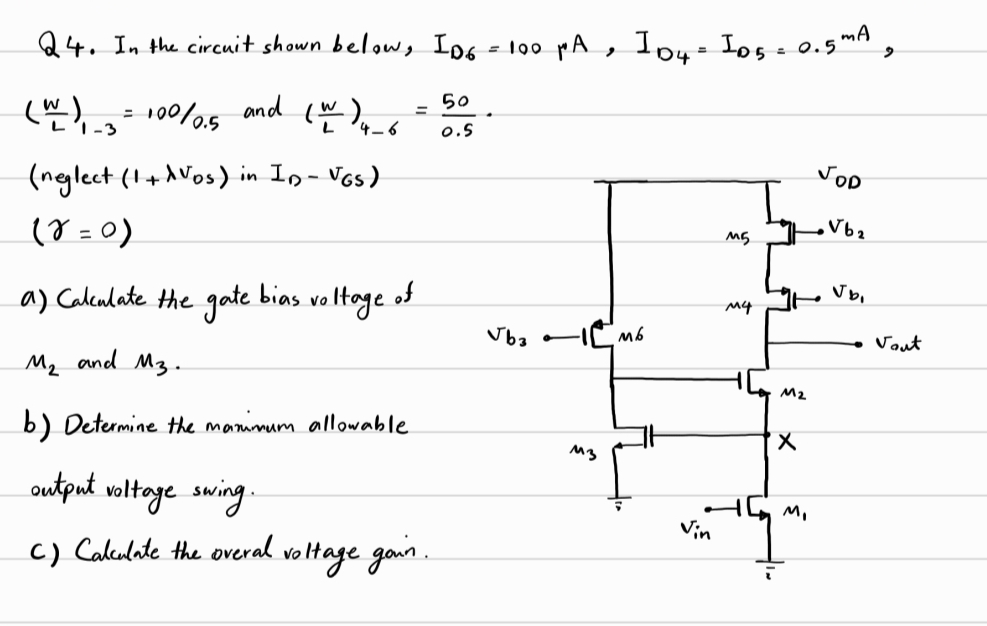 Q4. In the circuit shown below, I_D6 = 100 μA, I_D4 = I_D5 = 0.5 mA,
(W/L)_1-3 = 100/0.5 and (W/L)_4-6 = 50/0.5.
(neglect (1+λVDS) in ID - VGS)
(γ = 0)
a) Calculate the gate bias voltage of
M2 and M3.
b) Determine the maximum allowable
output voltage swing.
c) Calculate the overal voltage gain.
VDD
M5
Vb2
M4
Vb1
Vb3
M6
Vout
M2
M3
X
Vin
M1